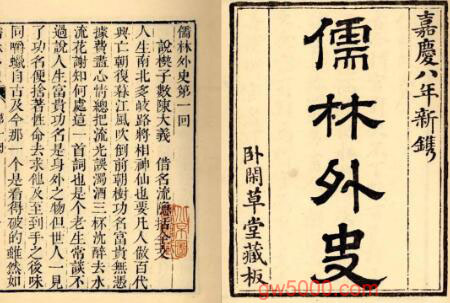 嘉慶八年新鐫
儒林外史
卧閑草堂藏板
儒林外史第一回
說楔子敷陳大義 借名流隱括全文
人生南北多岐路將相神仙也要凡人做百代
興亡朝復暮江風吹倒前朝樹功名富貴無憑
據費盡心情總把流光誤濁酒三杯沈醉去水
流花謝知何處這一首詞也是個老生常談不
過說人生富貴功名是身外之物但世人一見
了功名便捨著性命去求他及至到手之後味
同嚼蠟自古及今那一個是看得破的雖然如
gw5000.com